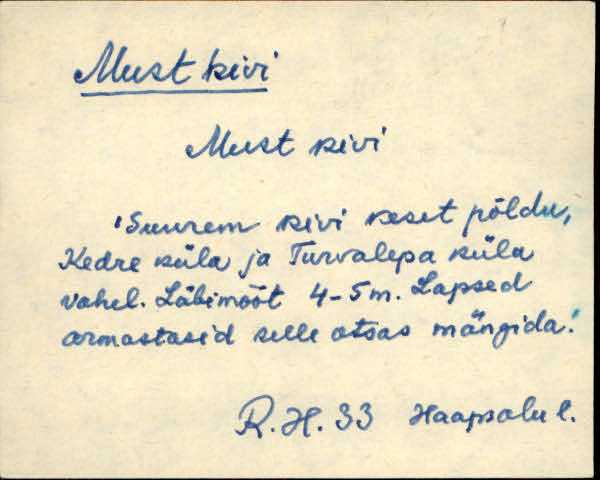 Must kivi
Must kivi
'Suurem kivi keset põldu,
Kedre küla ja Turvalepa küla
vahel. Läbimõõt 4-5m. Lapsed
armastasid selle otsas mängida.'
R.H. 33 Haapsalu l.